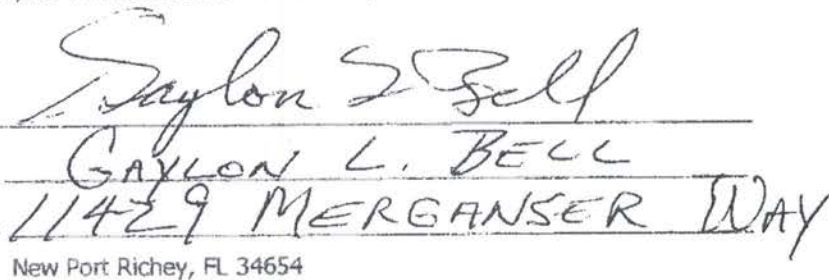 Gaylon L Bell
GAYLON L. BELL
11429 MERGANSER WAY
New Port Richey, FL 34654